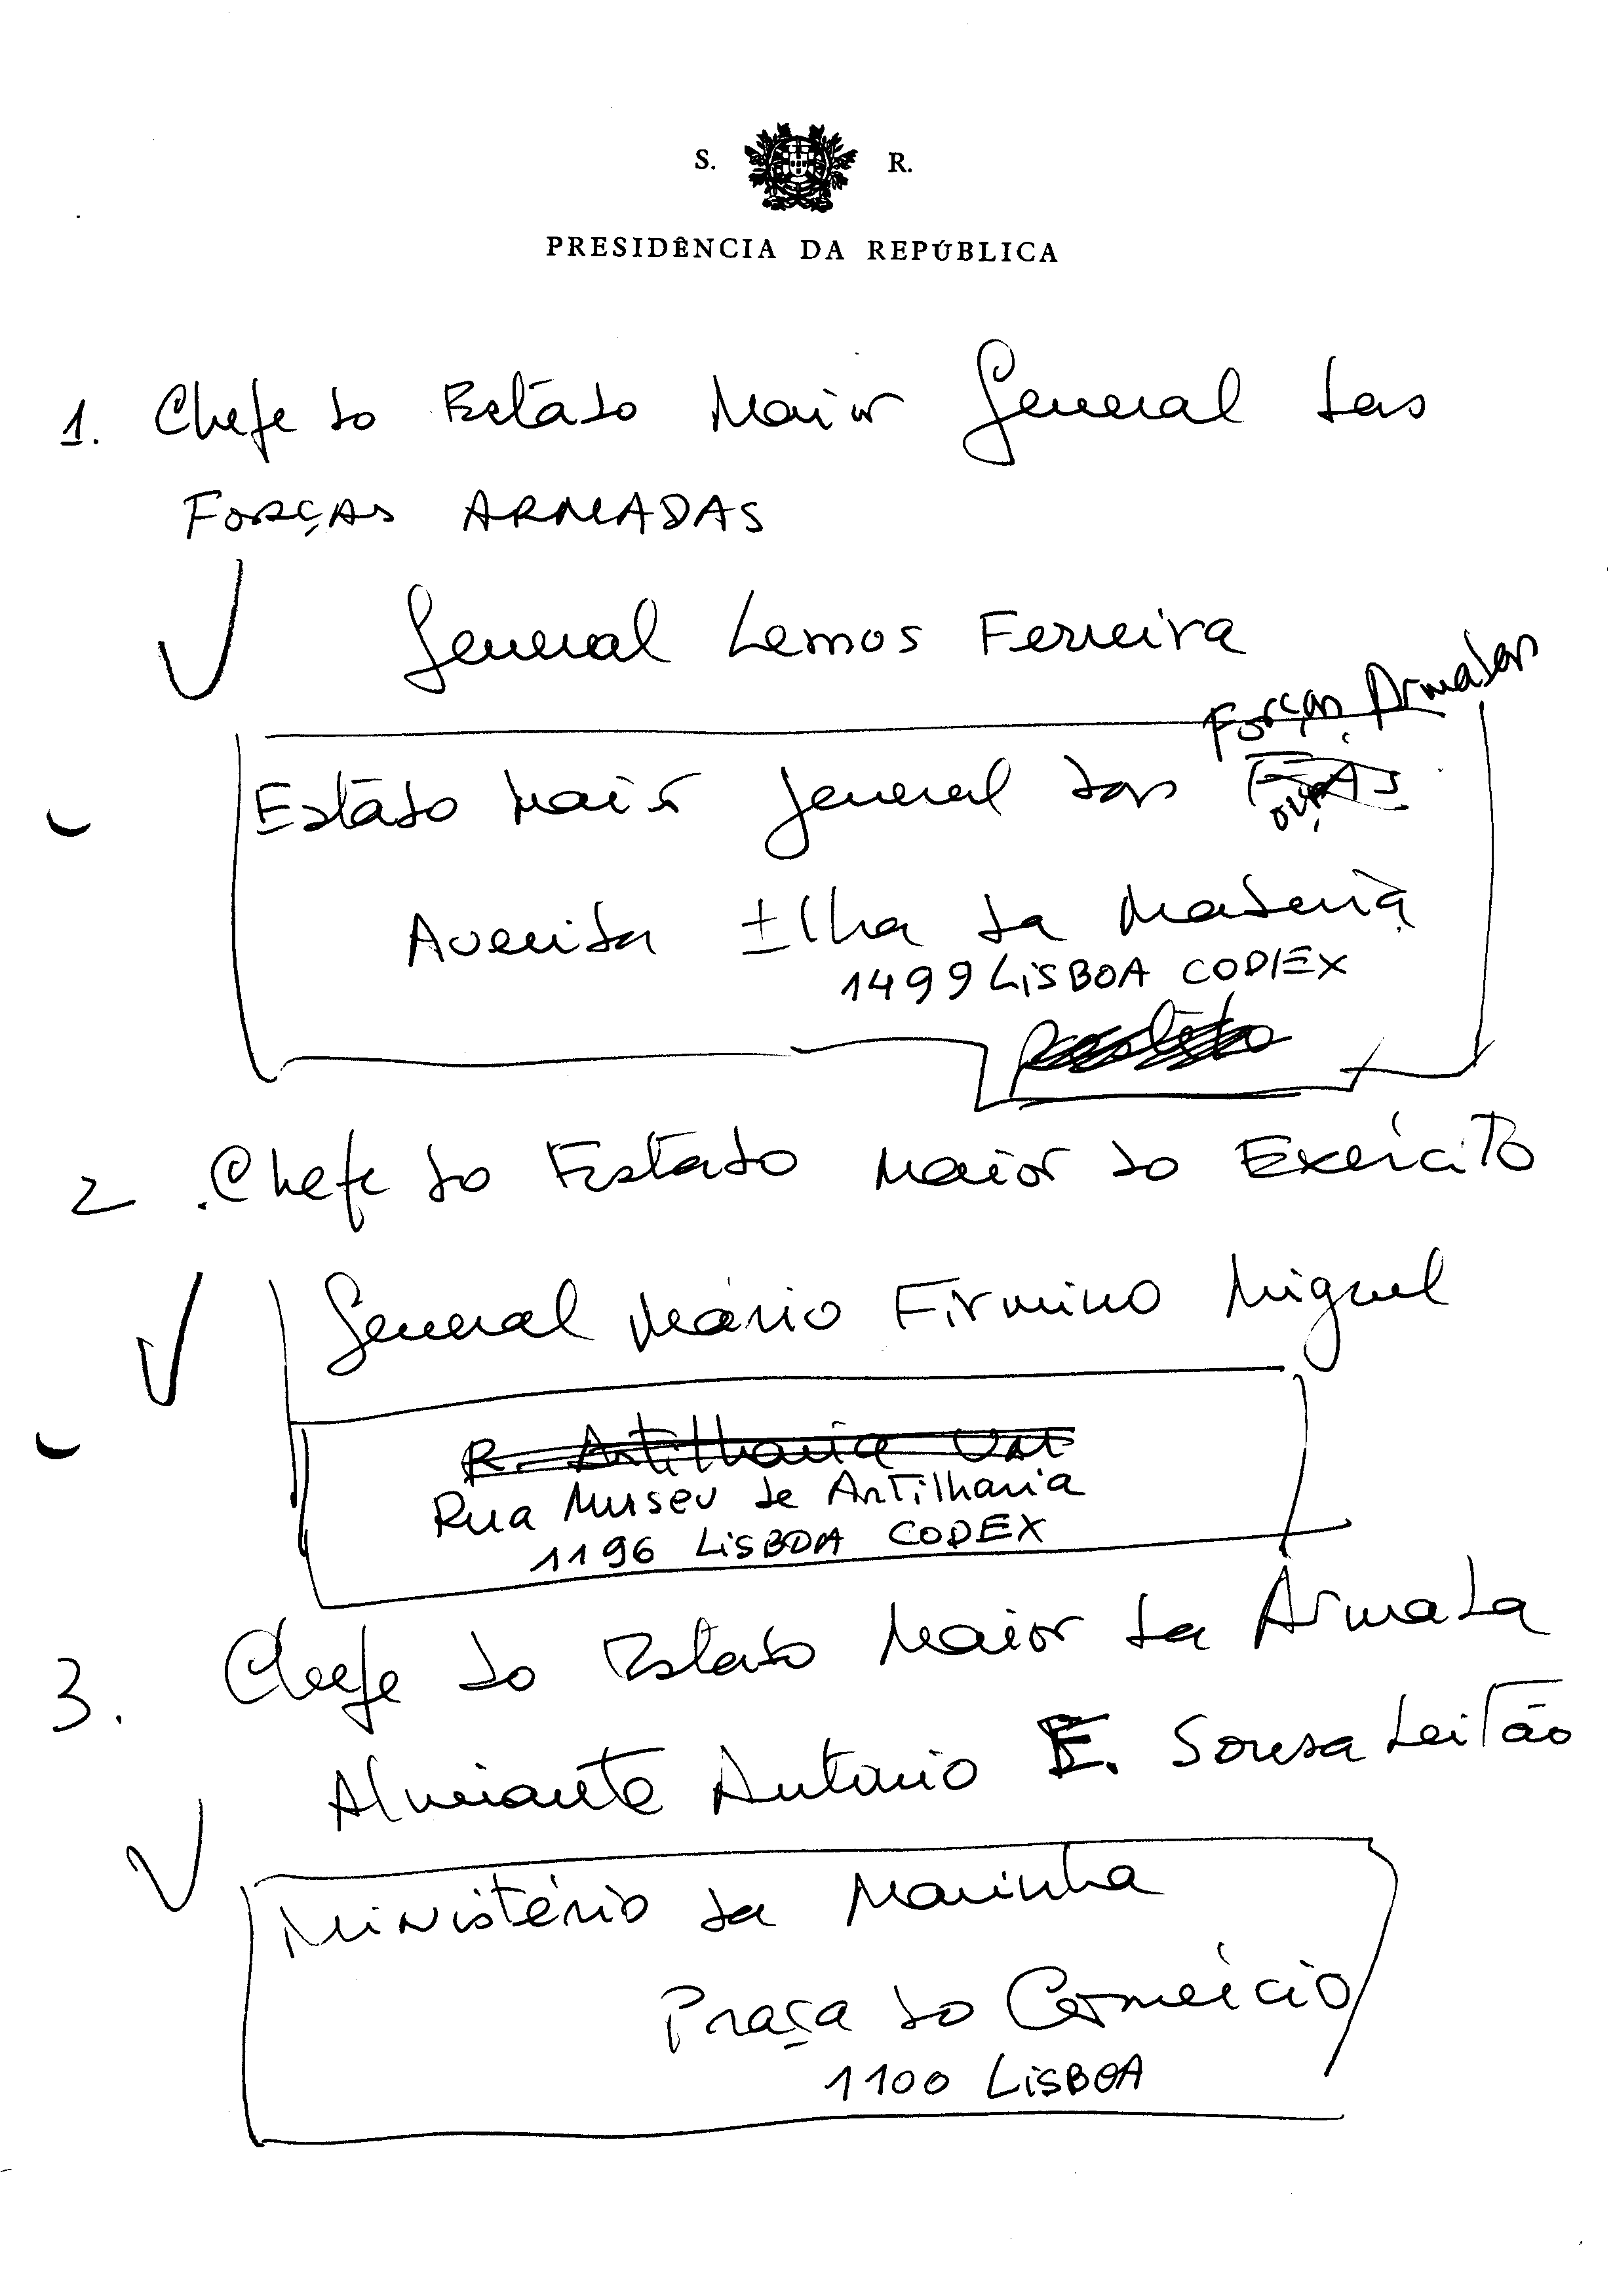 S. R.
PRESIDÊNCIA DA REPÚBLICA
1. Chefe do Estado Maior General das
FORÇAS ARMADAS
General Lemos Ferreira
Forças Armadas
Estado Maior General das
Avenida Ilha da Madeira
1499 LISBOA CODEX
2. Chefe do Estado Maior do Exército
General Mário Firmino Miguel
R. Artilharia Um
Rua Museu de Artilharia
1196 LISBOA CODEX
3. Chefe do Estado Maior da Armada
Almirante António E. Sousa Leitão
Ministério da Marinha
Praça do Comércio
1100 LISBOA